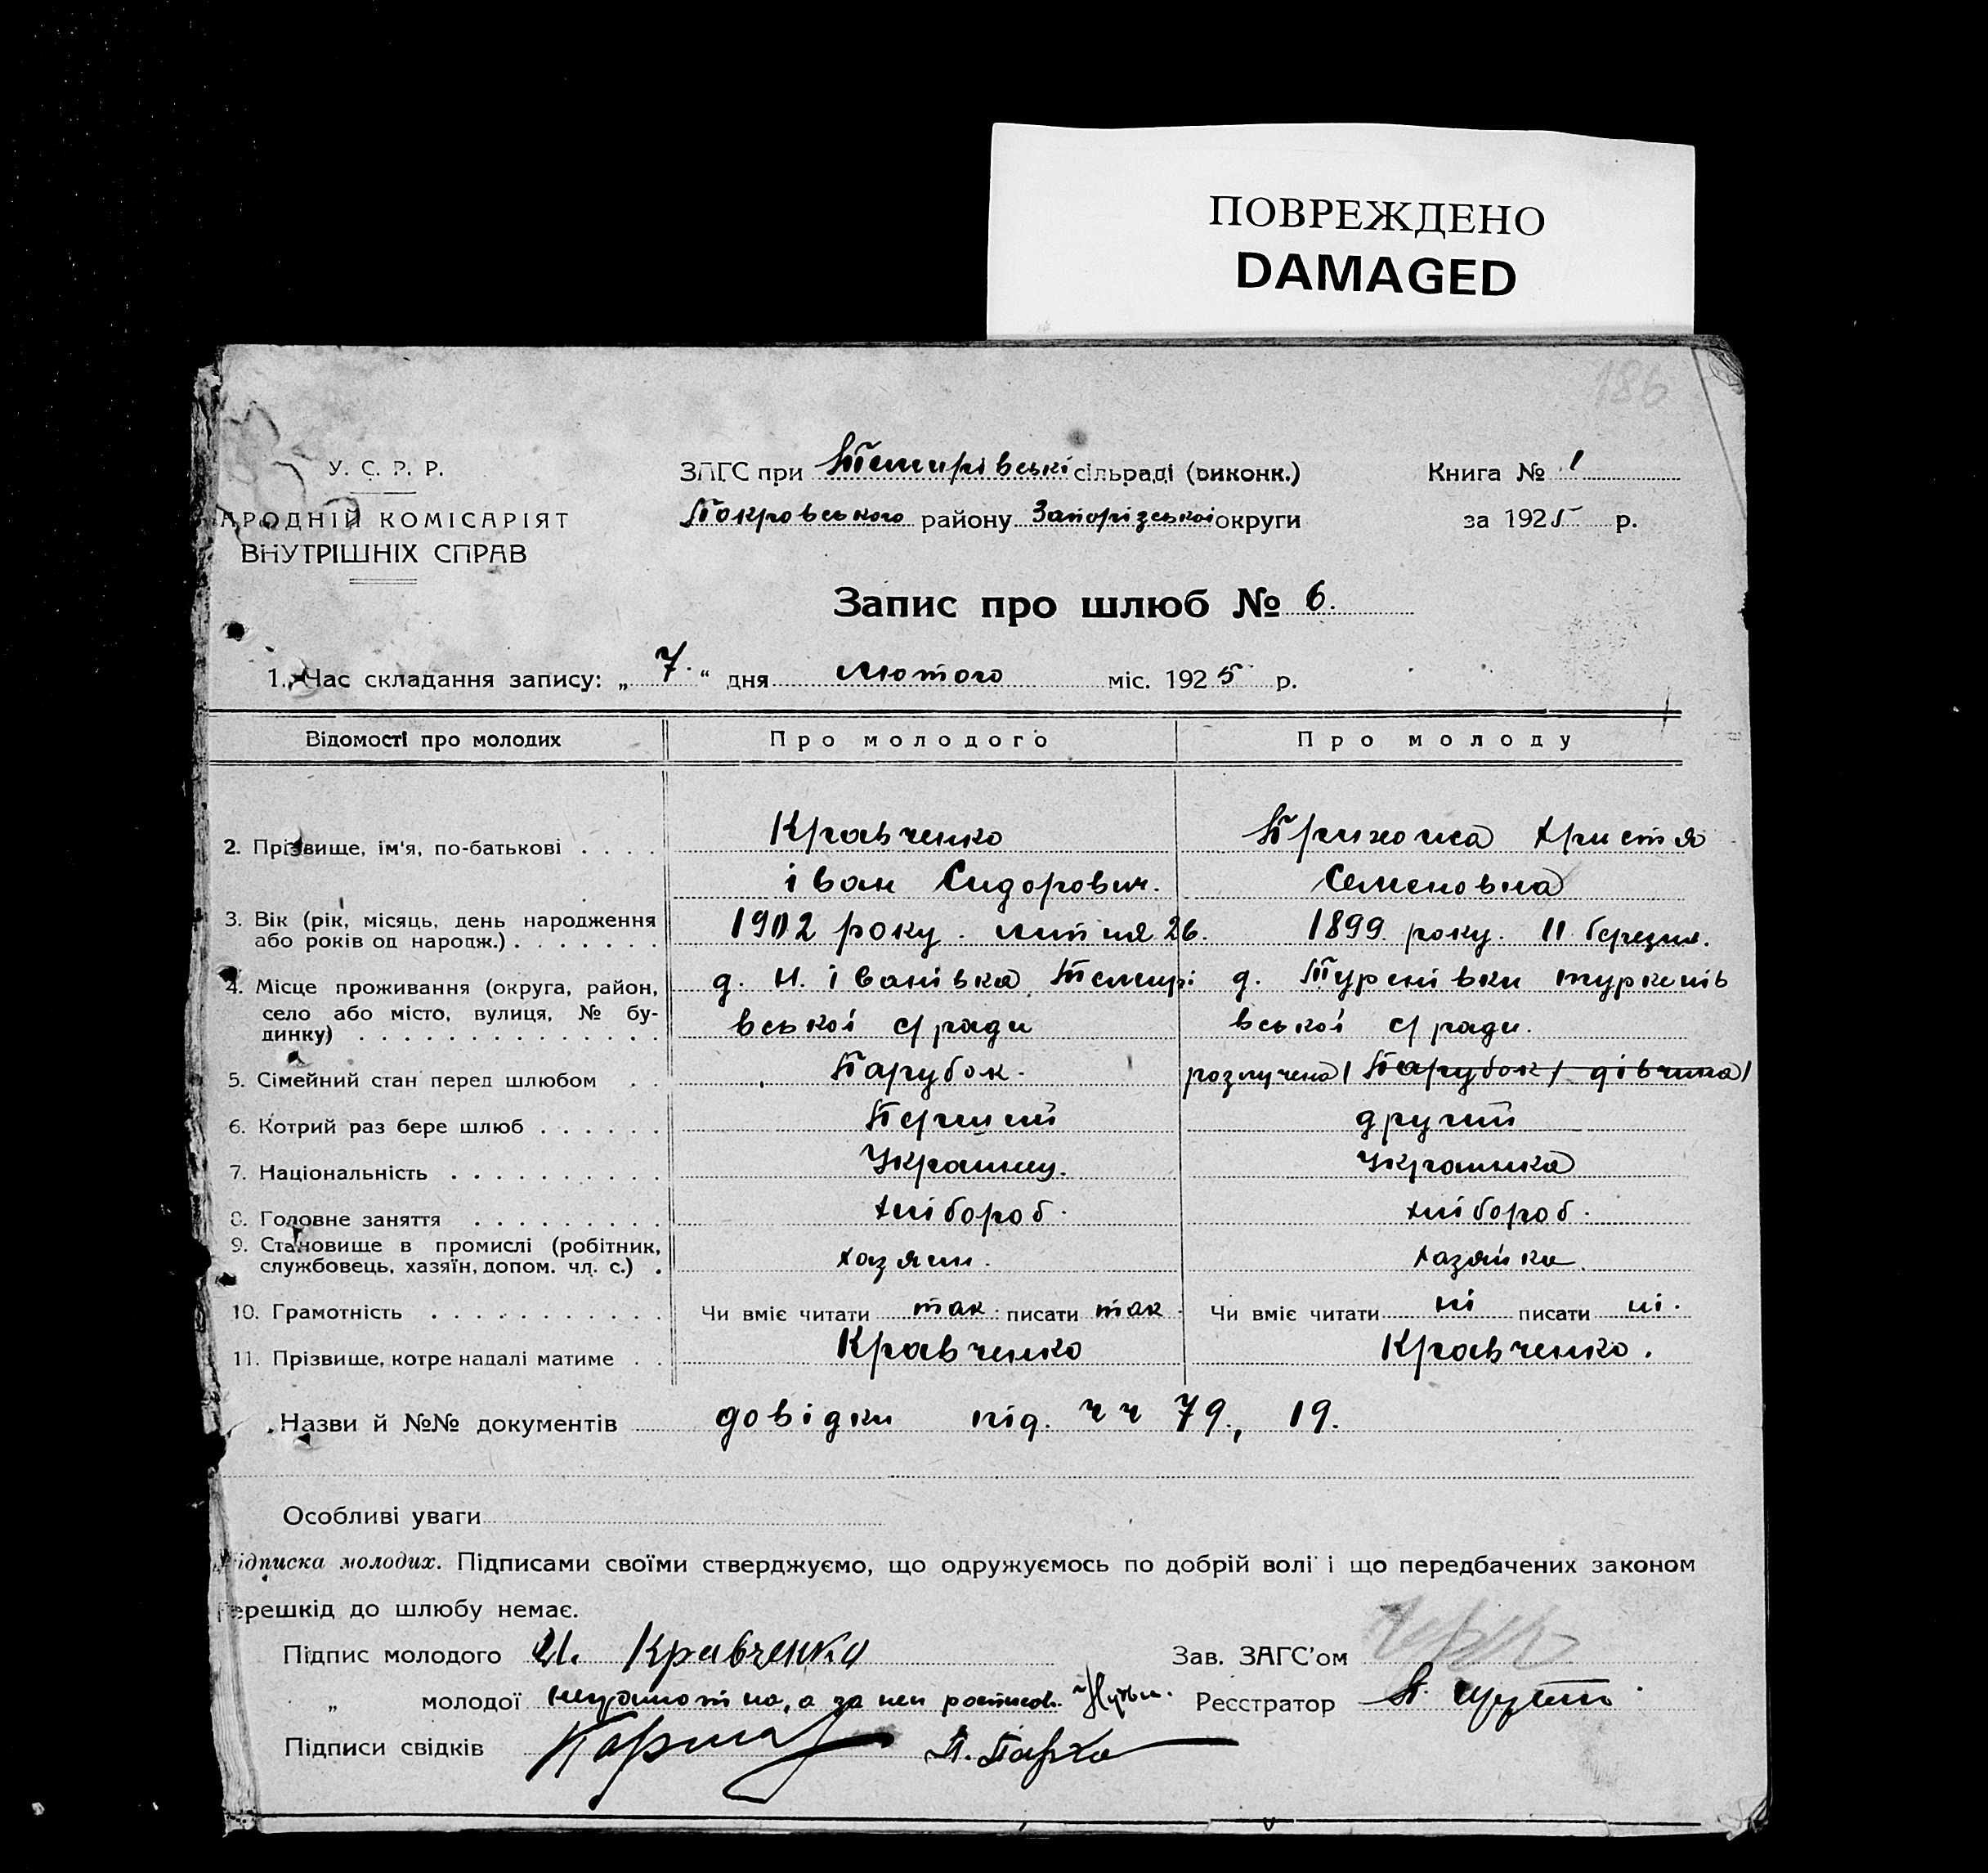 ПОВРЕЖДЕНО
DAMAGED
186
У. С. Р. Р.
АРОДНІЙ КОМІСАРІЯТ
ВНУТРІШНІХ СПРАВ
ЗАГС при Темирівські сільраді (виконк.)
Покровського району Запорізської округи
Книга № 1
за 1925 р.
Запис про шлюб № 6.
1. Час складання запису: „ 7. “ дня лютого міс. 1925 р.
Відомості про молодих Про молодого Про молоду
2. Прізвище, ім'я, по-батькові . . . . Кравченко Христя
іван Сидорович. Семеновна
3. Вік (рік, місяць, день народження
або років од народж.) . . . . . . . 1902 року. липня 26. 1899 року. 11 березня.
4. Місце проживання (округа, район, д. Н. іванівка Темирі д. Туренівки туркенів
село або місто, вулиця, № бу-
динку) . . . . . . . . . . . . . . вської с/ради вської с/ради.
5. Сімейний стан перед шлюбом . . Парубок. розлучена / Парубок / дівчина /
6. Котрий раз бере шлюб . . . . . . Перший другий
7. Національність . . . . . . . . . . Українец. Українка
8. Головне заняття . . . . . . . . . хлібороб. хлібороб.
9. Становище в промислі (робітник,
службовець, хазяїн, допом. чл. с.) . хазяин. хазяйка.
10. Грамотність . . . . . . . . . . . Чи вміє читати так. писати так. Чи вміє читати ні писати ні.
11. Прізвище, котре надалі матиме . . Кравченко Кравченко.
Назви й №№ документів довідки під. чч 79., 19.
Особливі уваги
ідписка молодих. Підписами своїми стверджуємо, що одружуємось по добрій волі і що передбачених законом
ерешкід до шлюбу немає.
Підпис молодого И. Кравченко Зав. ЗАГС'ом
„ молодої неграмотна, а за неи росписов. Реєстратор
Підписи свідків